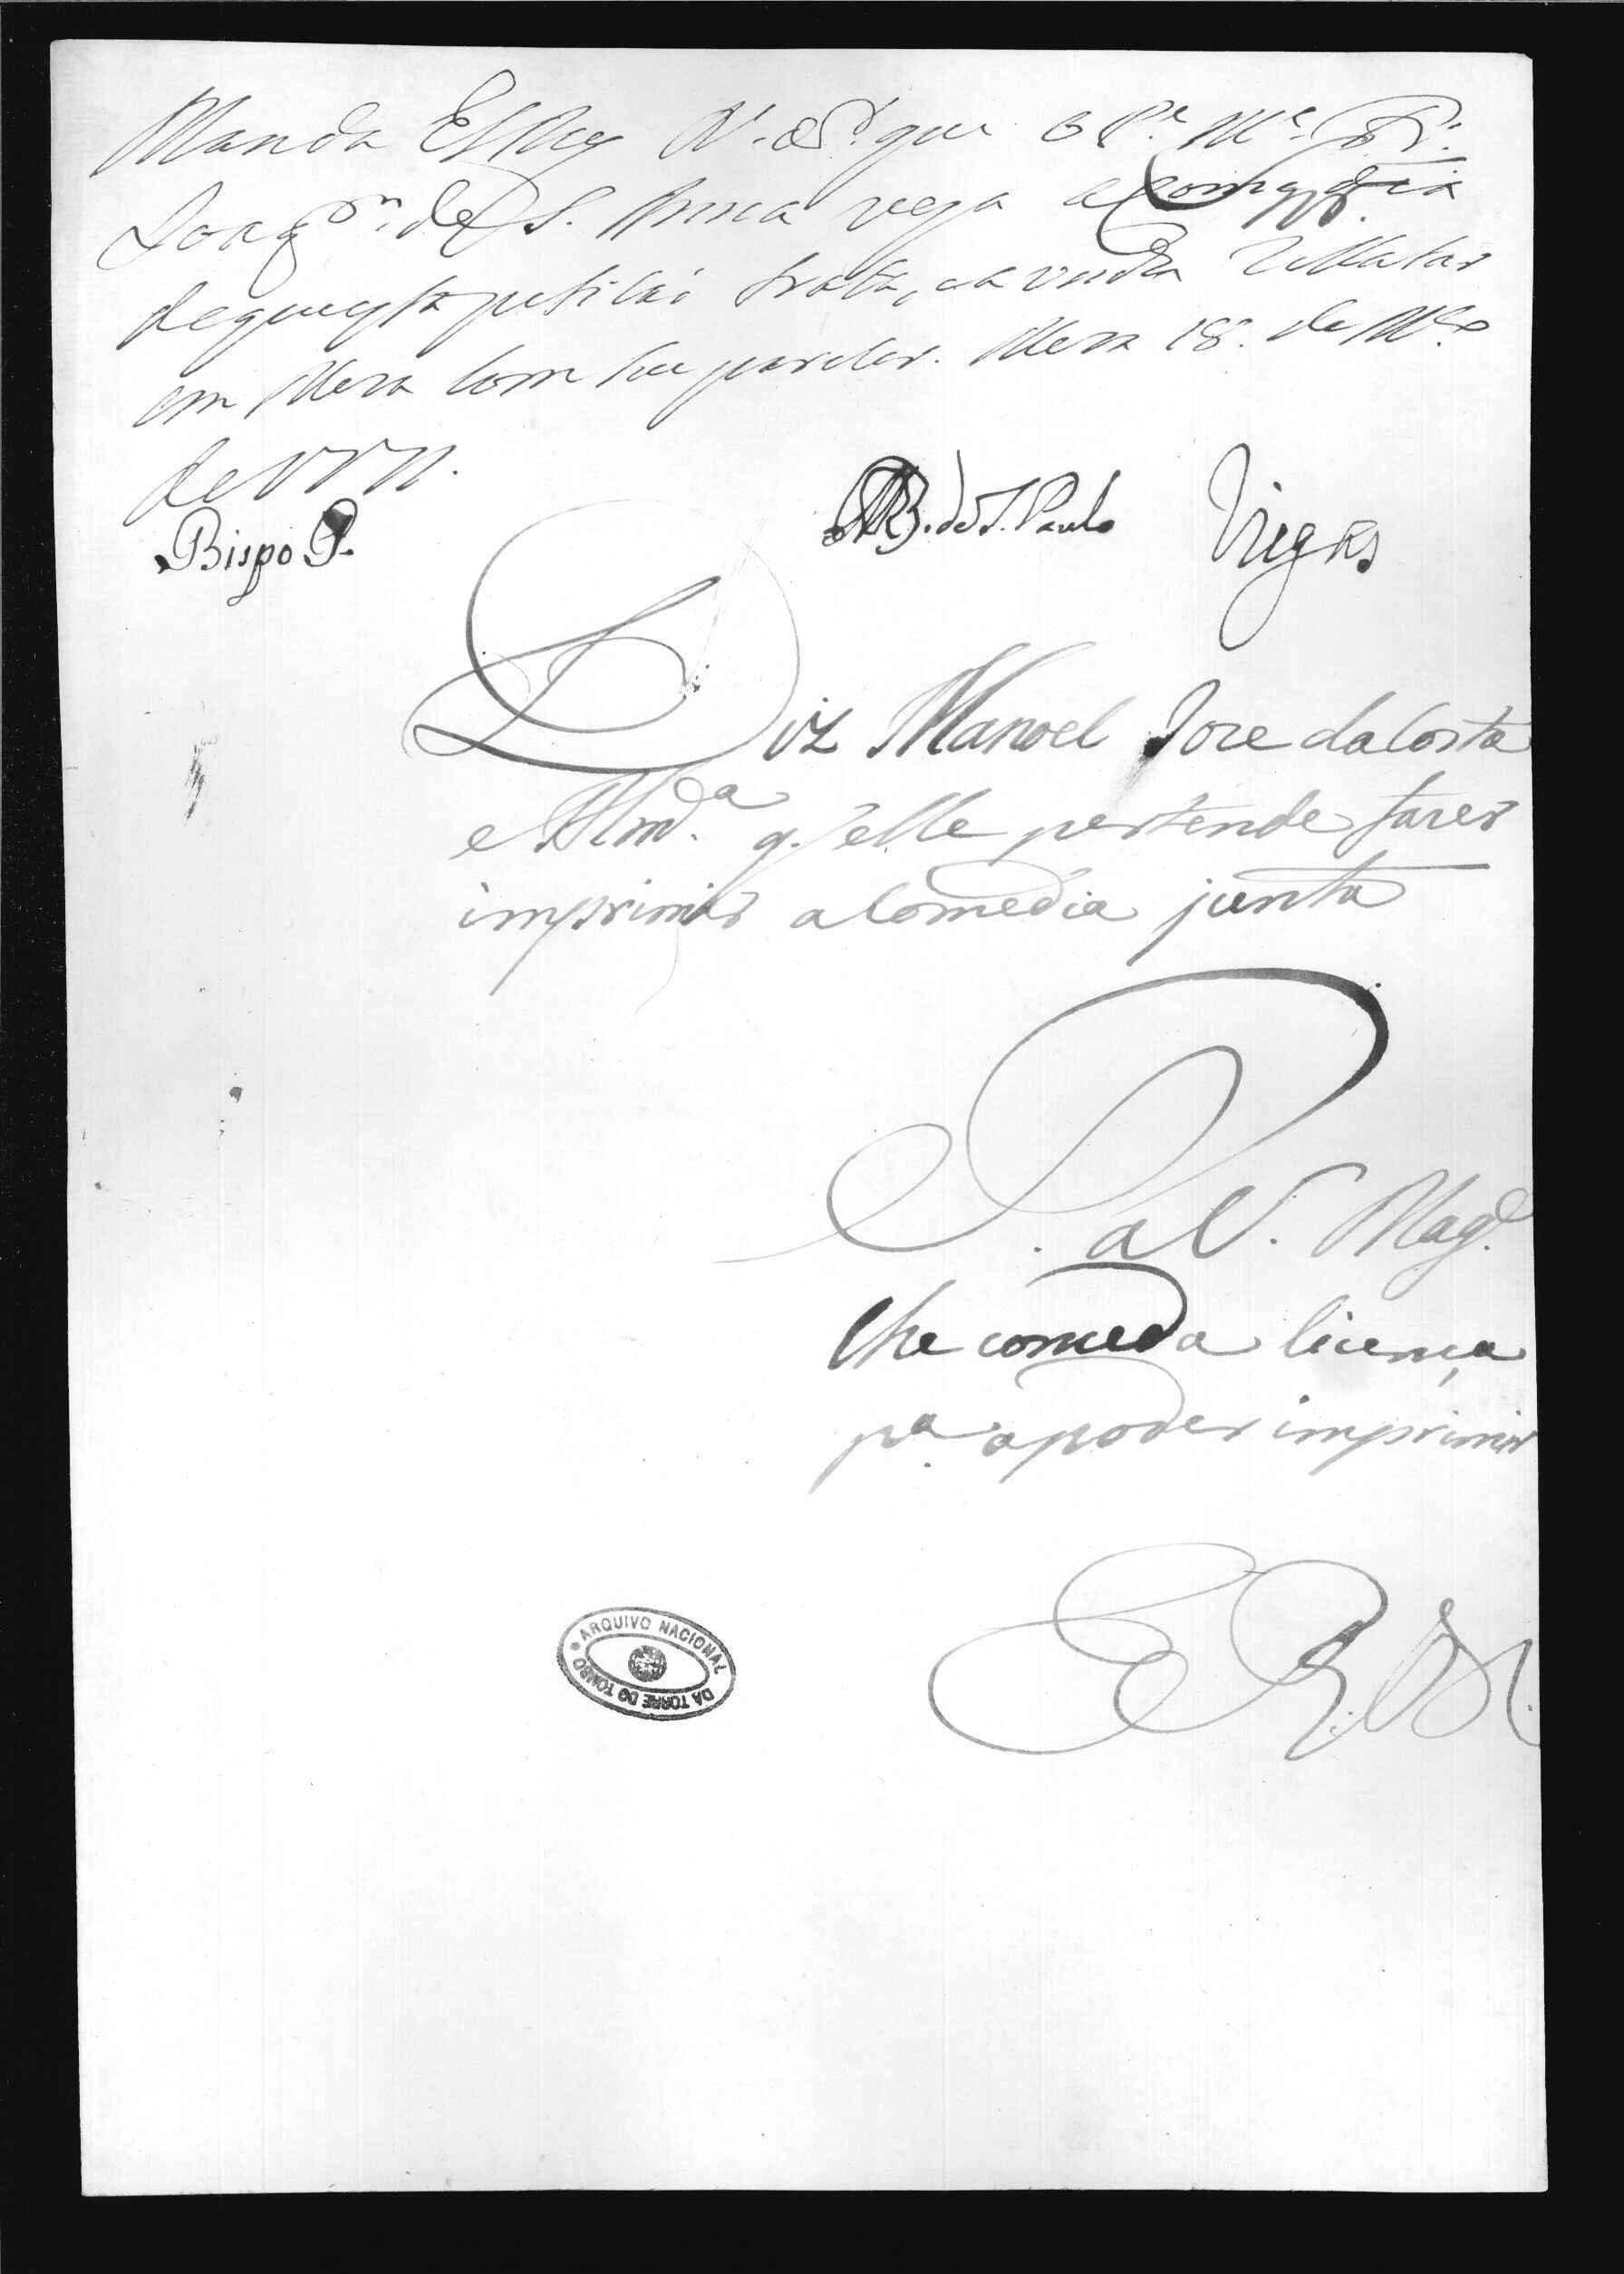 Manda El Rey N. Sr. que o P.e M.e Fr.
Joaq.m de S. Anna veja a Comedia
de que esta petição trata, e a venha Relatar
em Meza com seu parecer. Meza 18. de M.ço
de 1771.
Bispo P.
de S. Paulo Viegas
Diz Manoel Joze da Costa
e Alm.da q. elle pertende fazer
imprimir a Comedia junta
P. a V. Mag.e
lhe conceda licença
p.a a poder imprimir
E. R. M.
ARQUIVO NACIONAL DA TORRE DO TOMBO